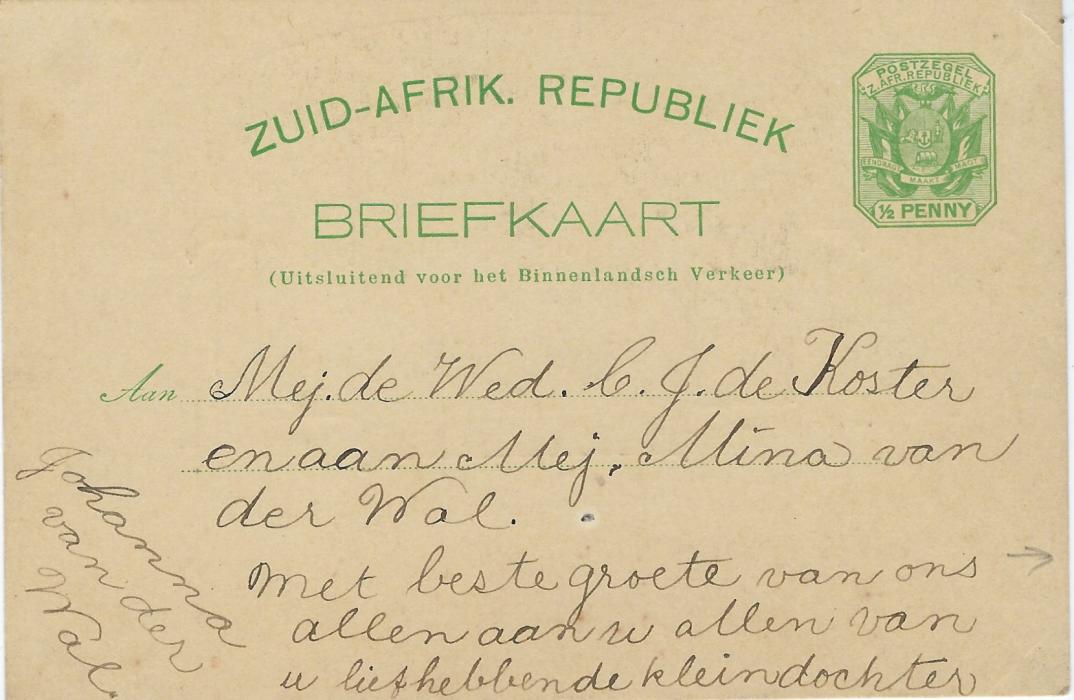 POSTZEGEL
Z. AFR. REPUBLIEK
EENDRAGT MAAKT MAGT
½ PENNY
ZUID-AFRIK. REPUBLIEK
BRIEFKAART
(Uitsluitend voor het Binnenlandsch Verkeer)
Aan Mej. de Wed. C. J. de Koster
en aan Mej. Mina van
der Wal.
Met beste groete van ons
allen aan u allen van
u liefhebbende kleindochter
Johanna
van der
Wal.